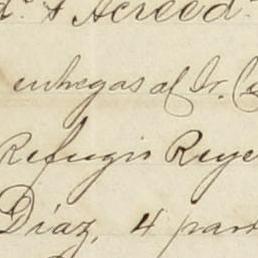 d.º & Acreed.
entregas al Sr. Co
Refugio Reye
Díaz, 4 par